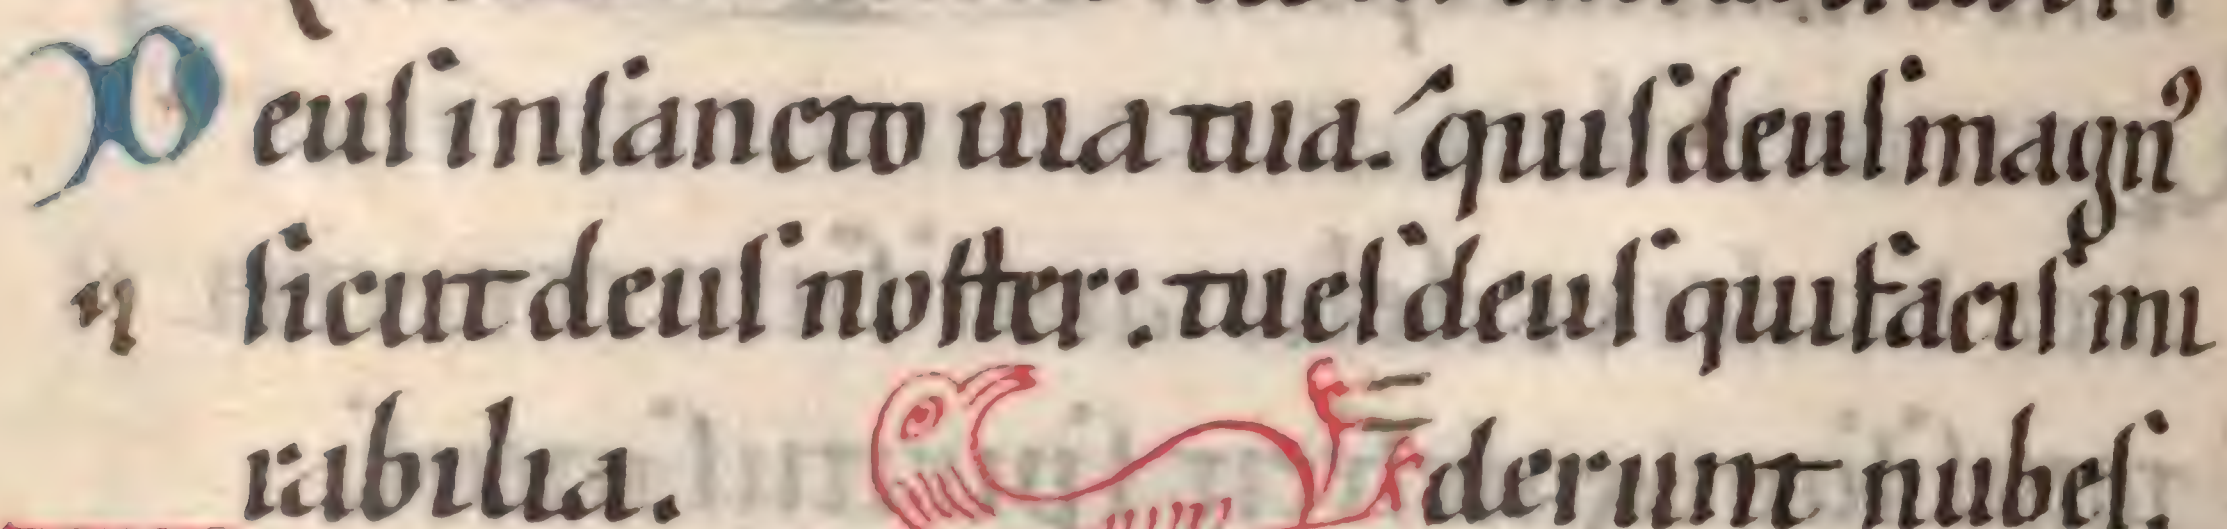 Deuſ inſancto uia tua. quiſ deuſ magn᾽
ſicut deuſ noſter: tu eſ deuſ qui faciſ mi
rabilia. derunt nubeſ.